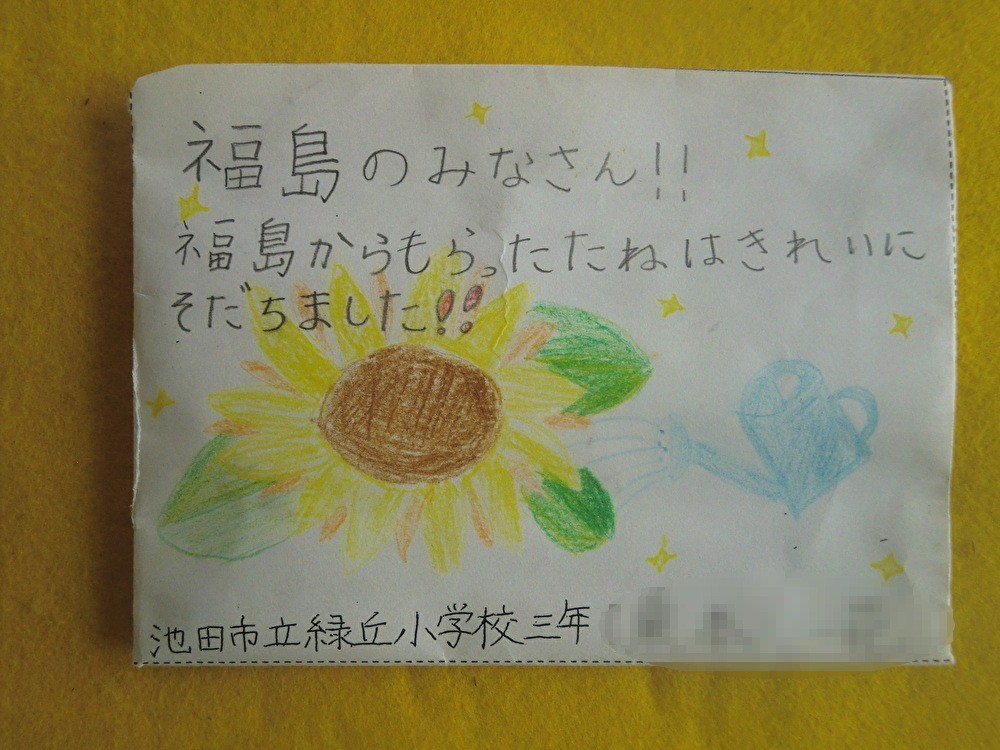 福島のみなさん!!
福島からもらったたねはきれいに
そだちました!!
池田市立緑丘小学校三年